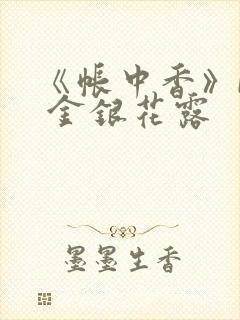 《帐中香》
金银花露
墨墨生香